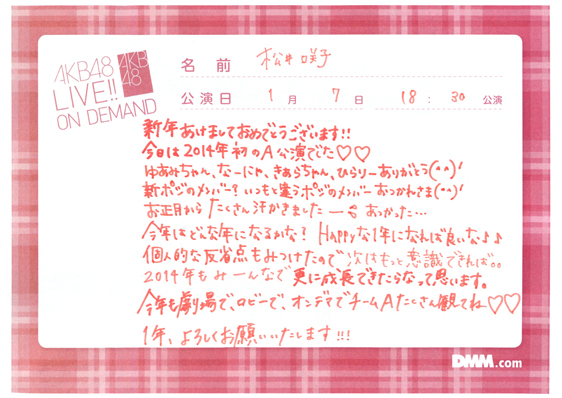 AKB48
LIVE!!
ON DEMAND
AKB
48
名前 松井咲子
公演日 1月 7日 18:30 公演
新年あけましておめでとうございます!!
今日は2014年初のA公演でした♡♡
ゆあみちゃん、なーにゃ、きぁらちゃん、ひらりーありがとう(^^)!
新ポジのメンバー?いつもと違うポジのメンバーおつかれさま(^^)!
お正月からたくさん汗かきました あつかった…
今年はどんな年になるかな? Happyな1年になれば良いな♪♪
個人的な反省点もみつけたので次はもっと意識できれば。。
2014年もみーんなで更に成長できたらなって思います。
今年も劇場で、ロビーで、オンデマでチームAたくさん観てね♡♡
1年、よろしくお願いいたします!!!
DMM.com